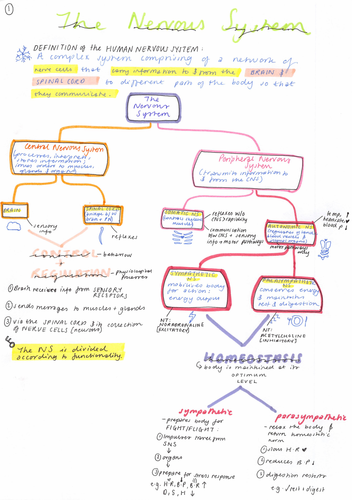 1
The Nervous System
DEFINITION of the HUMAN NERVOUS SYSTEM:
A complex system comprising of a network of
nerve cells that carry information to & from the BRAIN &
SPINAL CORD to different parts of the body so that
they communicate.
The
Nervous
System
Central Nervous System
Peripheral Nervous
System
(transmits information to
& from the CNS)
BRAIN
sensory
info
SPINAL CORD
reflexes
SOMATIC NS
AUTONOMIC NS
communication
b/w CNS + sensory
info + motor pathways
SYMPATHETIC
NS
mobilises body
for action:
energy output
PARASYMPATHETIC
NS
conserves energy
& maintains
rest & digestion
NT:
NORADRENALINE
(EXCITATORY)
NT:
ACETYLCHOLINE
(INHIBITORY)
CONTROL = behaviour
+
REGULATION = physiological
processes
① Brain receives info from SENSORY
RECEPTORS
② sends messages to muscles + glands
③ via the SPINAL CORD & its collection
of NERVE CELLS (neurons)
The NS is divided
according to functionality.
HOMEOSTASIS
body is maintained at its
OPTIMUM
LEVEL
sympathetic
- prepares body for
FIGHT/FLIGHT:
① impulses travel from
SNS
↓
② organs
↓
③ prepare for stress response
e.g. HR, BP, BR ↑
D, S, H ↓
parasympathetic
- relax the body &
return homeostatic
norm
① slows H.R
② reduces B.P ↓
③ digestion restarts
e.g. rest + digest